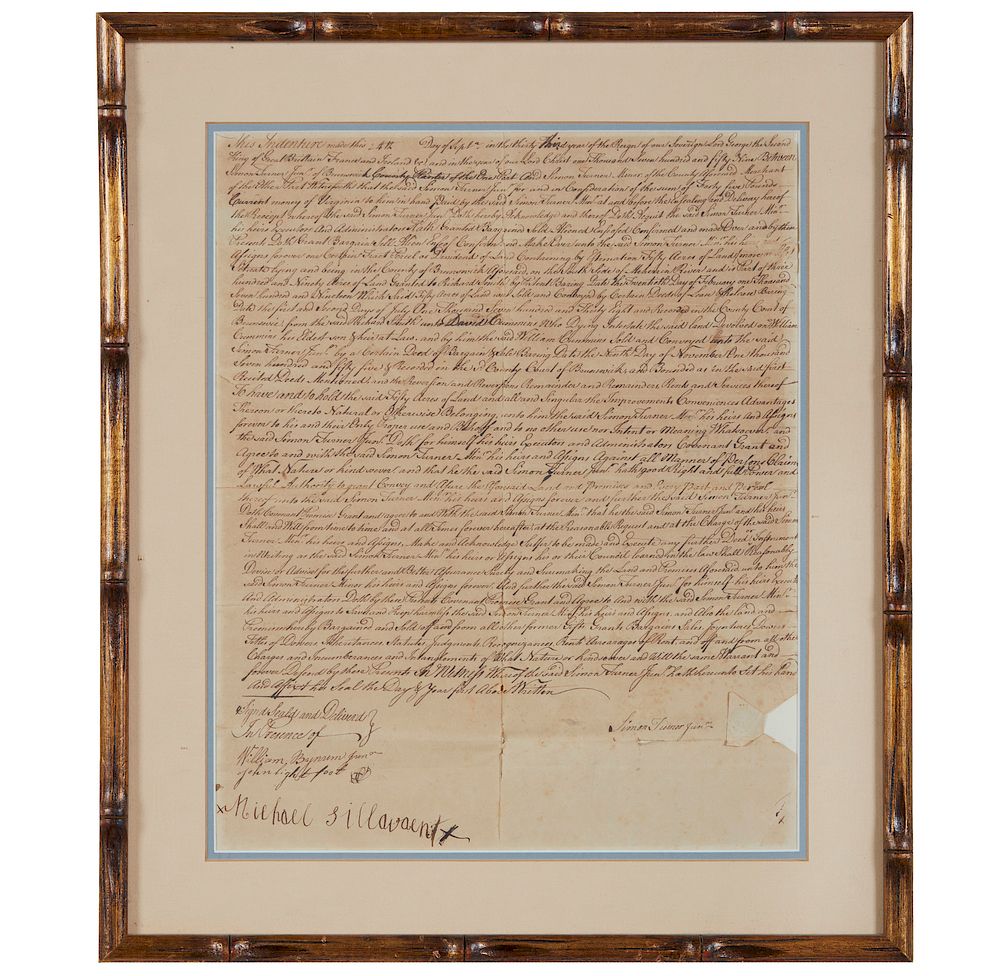 This Indenture made this 24th Day of Septr in the thirty third year of the Reign of our Sovereign Lord George the Second
King of Great Brittain France and Ireland &c and in the year of our Lord Christ one Thousand Seven hundred and fifty Nine Between
Simon Turner Junr of Brunswick County Planter of the One Part And Simon Turner Minor of the County Aforesaid Merchant
of the Other Part Witnesseth that the said Simon Turner Junr for and in Consideration of the sum of Forty five Pounds
Current money of Virginia to him in hand Paid by the said Simon Turner Minr at and before the Sealing and Delivery hereof
the Receipt whereof he the said Simon Turner Junr Doth hereby Acknowledge and thereof Doth Acquit the said Simon Turner Minr
his heirs Executors and Administrators Hath Granted Bargained Sold Aliened Confirmed and made Over and by these
Presents Doth Grant Bargain Sell Alien Confirm and Make Over unto the said Simon Turner Minr his heirs
Assigns forever one Certain Tract Parcel or Dividend of Land Containing by Estimation Fifty Acres of Land
Situate lying and being in the County of Brunswick Aforesaid on the South Side of Meherrin River and is Part of three
hundred and Ninety Acres of Land Granted to Richard Smith by Patent Baring Date the Twentoth Day of February one Thousand
Seven hundred and Nineteen Which Said Fifty Acres of Land was Sold and Conveyed by Certain Deeds of Lease & Release Baring
Date the first and Second Days of July One Thousand Seven hundred and Thirty Eight and Recorded in the County Court of
Brunswick from the said Richard Smith unto David Clemmins Who Dying Intestate the said land on William
Cummins his Eldest son & heir at Law, and by him the said William Clemmins Sold and Conveyed unto the said
Simon Turner Junr by a Certain Deed of Bargain & Sale Baring Date the Ninth Day of November One thousand
Seven hundred and fifty five & Recorded in the sd County Court of Brunswick and Bounded as in the said first
Recited Deeds Mentioned and the Reversion and Reversions Remainder and Remainders Rents and Services thereof
To have and to hold the said Fifty Acres of Land and all and Singular the Improvements Conveniences Advantages
Thereon or thereto Natural or Otherwise Belonging, unto him the said Simon Turner Minr his heirs And Assigns
forever to his and their Only Proper use and Behoof and to no other use nor Intent or Meaning Whatsoever and
the said Simon Turner Junr Doth for himself his heirs Executors and Administrators Covenant Grant and
Agree to and with the said Simon Turner Minr his heirs and Assigns Against all Manner of Persons Claim
of What Nature or kind soever and that he the said Simon Turner Junr hath good Right and full Power and
Lawful Authority to grant Convey and Assure the Aforesaid Land and Premises and Every Part and Parcel
thereof unto the said Simon Turner Minr his heirs and Assigns forever and further the said Simon Turner Junr
Doth Covenant Promise Grant and agree to and With the said Simon Turner Minr that he the said Simon Turner Junr and his heirs
Shall and Will from time to time and at all Times forever hereafter at the Reasonable Request and at the Charge of the said Simon
Turner Minr his heirs and Assigns, Make and Acknowledge Suffer to be made and Execute any further Deed or Instrument
in Writing as the said Simon Turner Minr his heirs or Assigns his or their Council learned in the law Shall Reasonably
Devise or Advise for the further and Better Assurance Surety and Suremaking the Land and Premises Aforesaid unto him the
said Simon Turner Minor his heirs and Assigns forever And further the said Simon Turner Junr for himself his heirs Executors
And Administrators Doth by these Presents Covenant Promise Grant and Agree to And with the said Simon Turner Minr
his heirs and Assigns to Save and keep harmless the said Simon Turner Minr his heirs and Assigns, and Also the land and
Premises hereby Bargained and Sold off and from all other former Gifts Grants Bargains Sales Joyntures Dowers
Titles of Dower Inheritances Statutes Judgments Recognizances Rents Arrearages of Rent and off and from all other
Charges and Incumberances and Intanglements of What Nature or kind soever and Will the same Warrant and
forever Defend by these Presents In Witness Whereof the said Simon Turner Junr hath hereunto Set his hand
And Affixt his Seal the Day & Year first Above Written
Signd Seald and Deliverd
In Presence of
William Bynum Junr
John Lightfoot
Simon Turner Junr
x Michael Sillavaent x